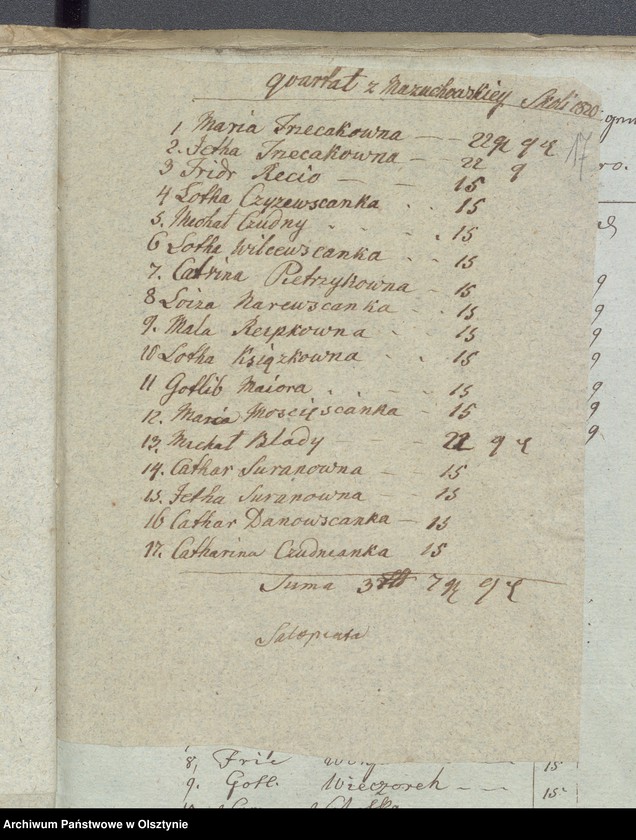 quartał z Mazuchowskiey Skoli 1820
17
1 Maria Trzecakowna — 22 g 9
2. Jetha Trzecakowna — 22 9
3 Fridr Recio — 15
4 Lotha Czyzewscanka . . 15
5. Michał Czudny . . 15
6 Lotha Wilcewscanka . . 15
7. Catrina Pietrzykowna — 15
8 Loiza Narewscanka . 15
9. Mala Rezpkowna . . 15
10 Lotha Książkowna . . 15
11 Gotlib Maiora . . 15
12. Maria Moscięscanka — 15
13. Michał Blady — 22 9
14. Cathar Suranowna — 15
15. Jetha Suranowna — 15
16 Cathar Danowscanka — 15
17. Catharina Czudnianka 15
Suma 3 7 9
8, Fric 15
9. Gotl. Wieczoreh — 15
Archiwum Państwowe w Olsztynie